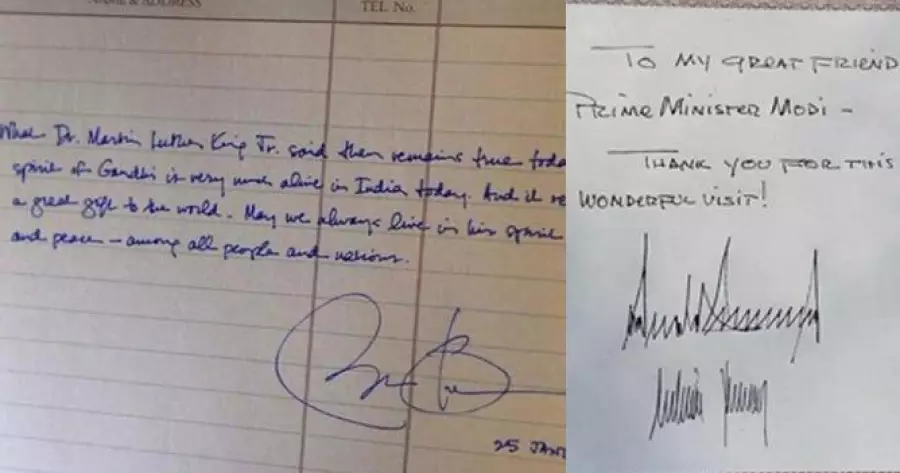 NAME & ADDRESS
TEL No.
What Dr. Martin Luther King Jr. said then remains true toda
spirit of Gandhi is very much alive in India today. And it re
a great gift to the world. May we always live in his spirit
and peace – among all people and nations.
25 JAN
TO MY GREAT FRIEND
PRIME MINISTER MODI –
THANK YOU FOR THIS
WONDERFUL VISIT!